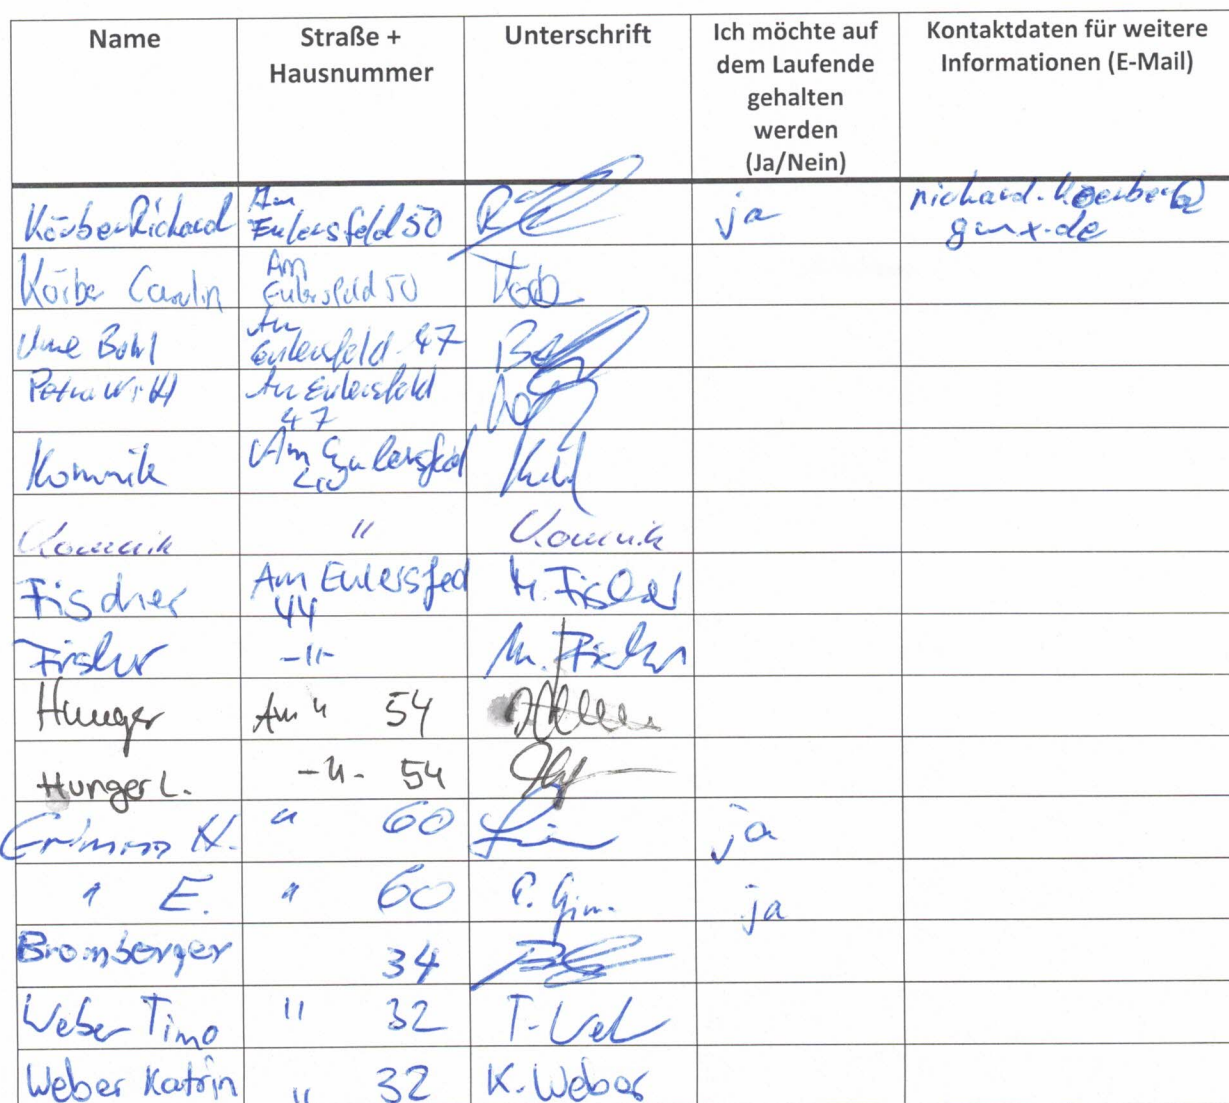 Name Straße + Hausnummer Unterschrift Ich möchte auf dem Laufende gehalten werden (Ja/Nein) Kontaktdaten für weitere Informationen (E-Mail)
Körber Richard Am Eulersfeld 50 ja richard.koerber@gmx.de
Körber Carolin Am Eulersfeld 50
Uwe Bohl Am Eulersfeld 47
Petra Am Eulersfeld 47
Komnik Am Eulersfeld
Komnik " Komnik
Fischer Am Eulersfed 44 M. Fischer
Fischer -"- M. Fischer
Hunger Am " 54
Hunger L. -"- 54
H. " 60 ja
" E. " 60 ja
Bromberger 34
Weber Timo " 32
Weber Katrin " 32 K. Weber